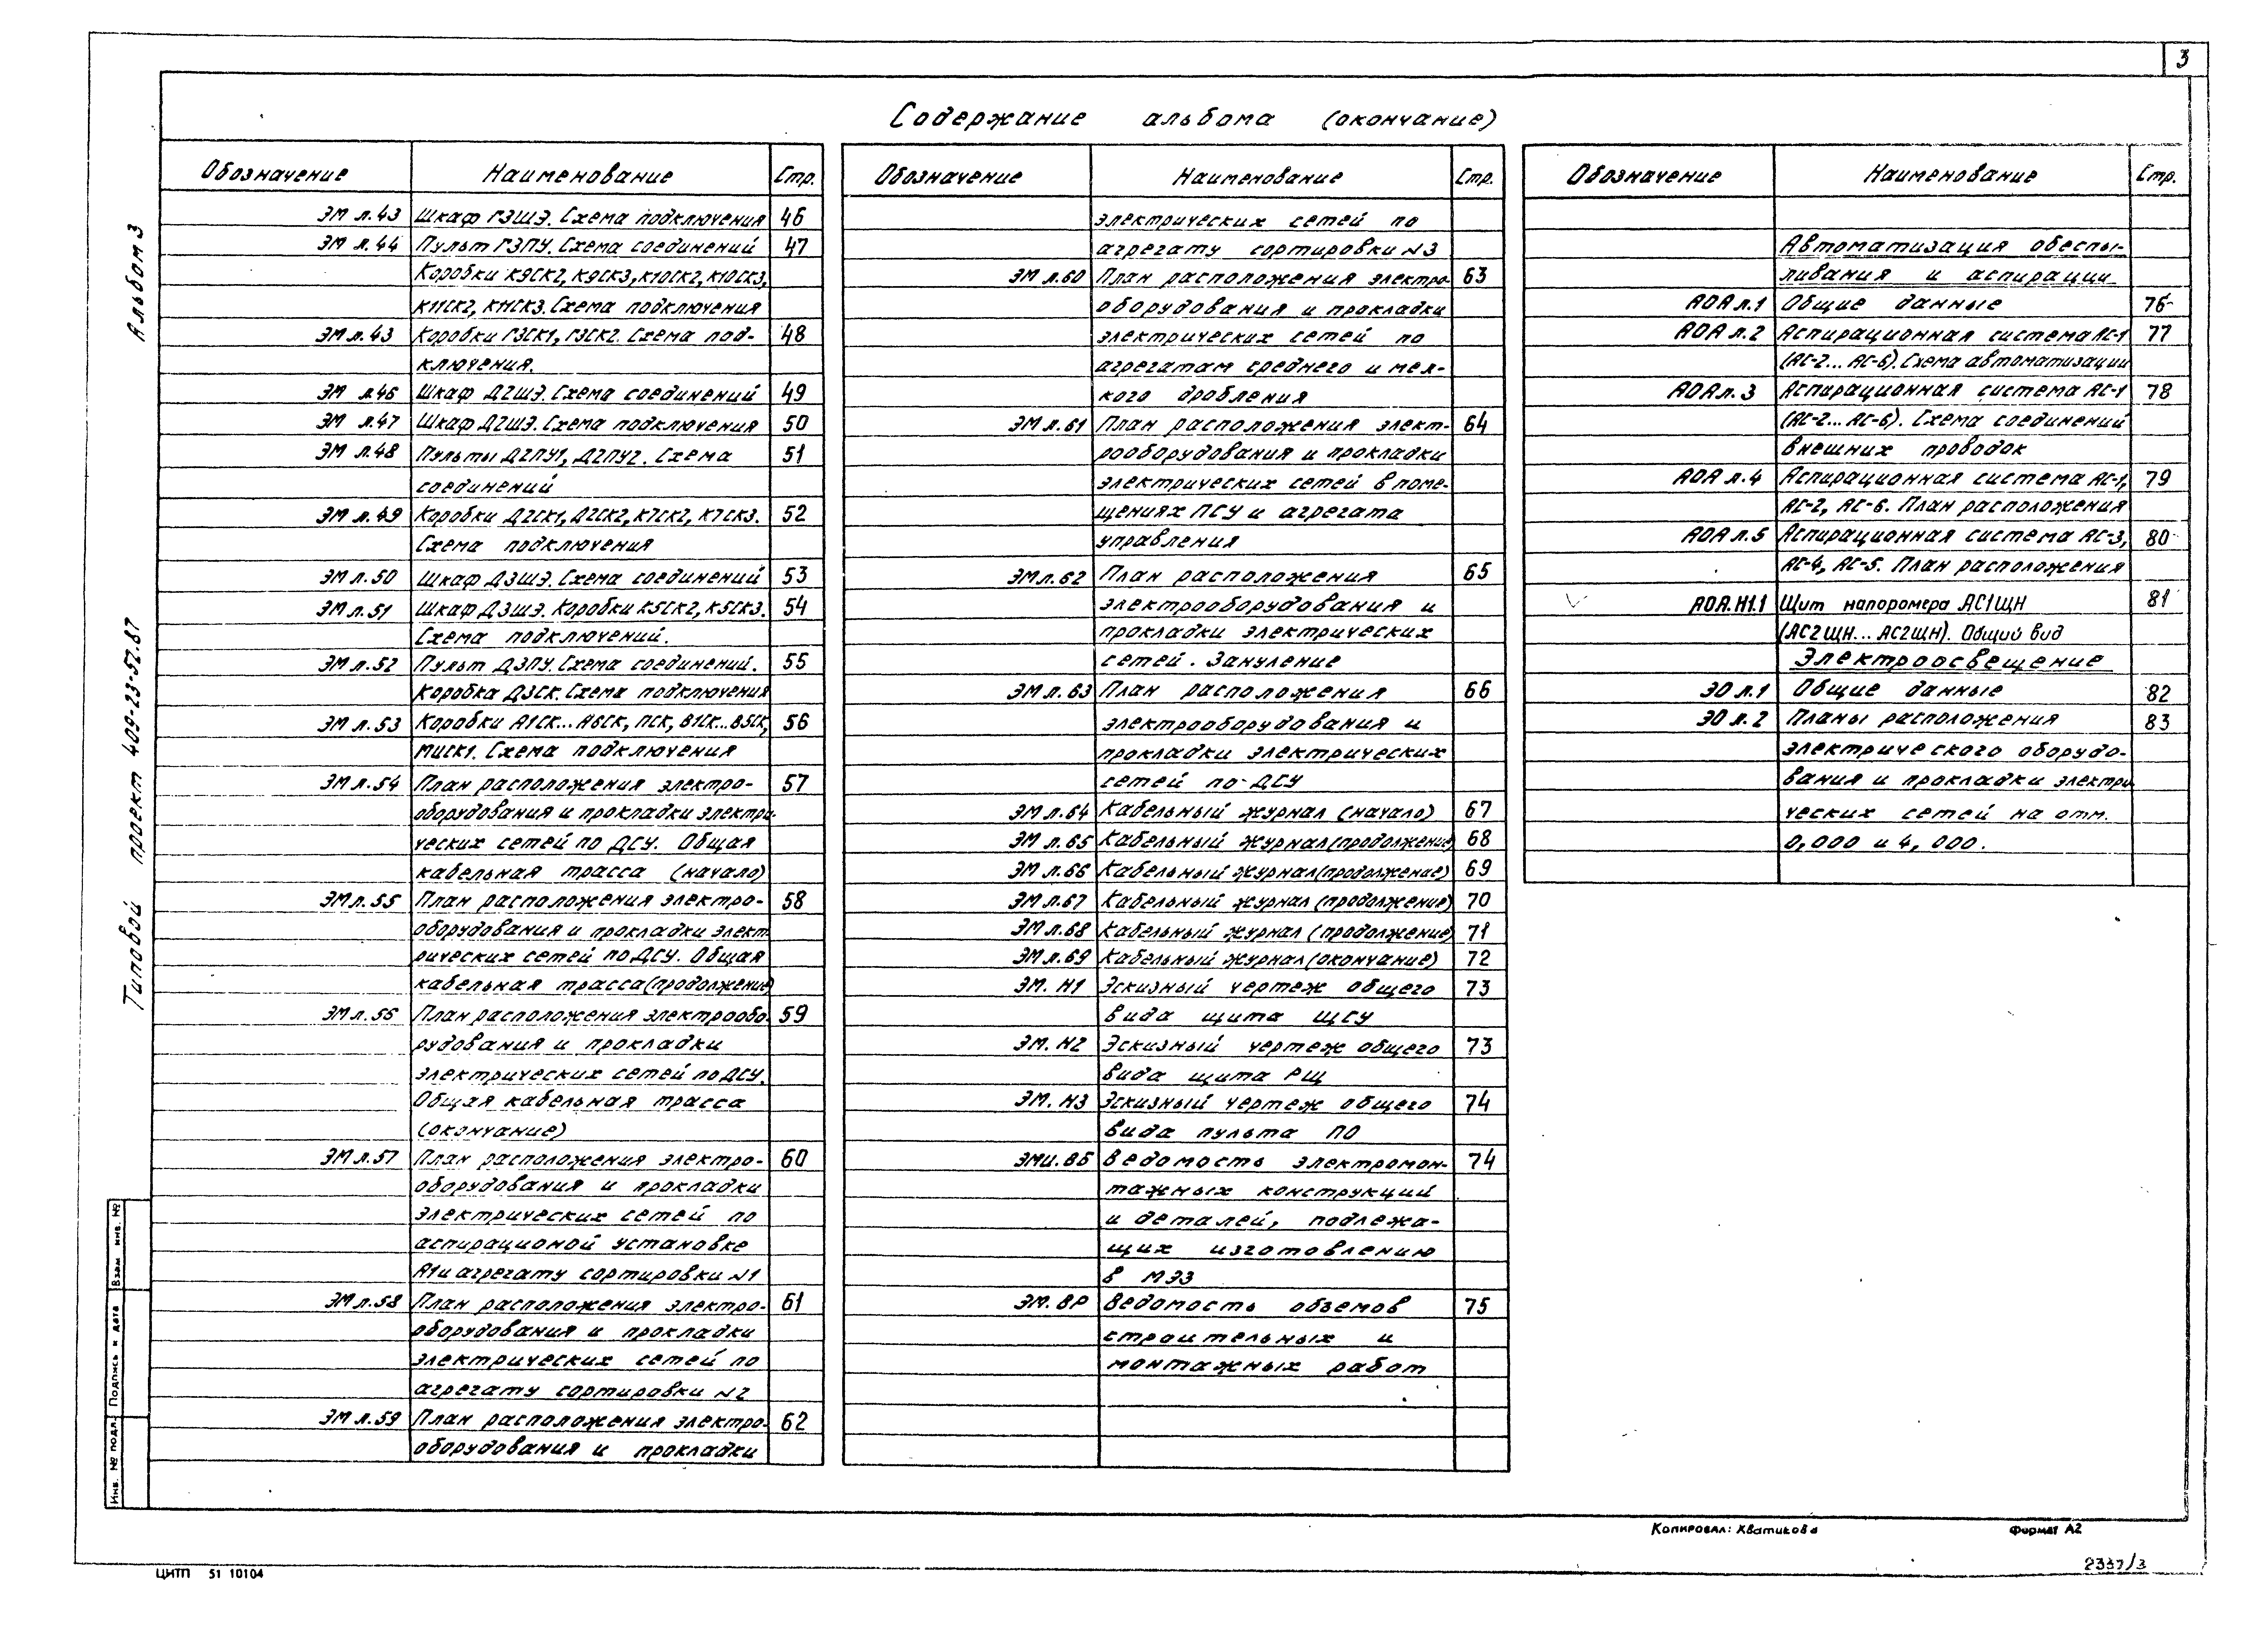 3
Содержание альбома (окончание)
Альбом 3
Типовой проект 409-23-52.87
Обозначение Наименование Стр.
ЭМ л.43 Шкаф Г3ШЭ. Схема подключения 46
ЭМ л.44 Пульт Г3ПУ. Схема соединений 47
Коробки К9СК2, К9СК3, К10СК2, К10СК3,
К11СК2, К11СК3. Схема подключения
ЭМ л.43 Коробки Г3СК1, Г3СК2. Схема под-
48
ключения.
ЭМ л.46 Шкаф Д2ШЭ. Схема соединений 49
ЭМ л.47 Шкаф Д2ШЭ. Схема подключения 50
ЭМ л.48 Пульты Д2ПУ1, Д2ПУ2. Схема 51
соединений
ЭМ л.49 Коробки Д2СК1, Д2СК2, К7СК2, К7СК3. 52
Схема подключения
ЭМ л.50 Шкаф Д3ШЭ. Схема соединений 53
ЭМ л.51 Шкаф Д3ШЭ. Коробки К5СК2, К5СК3. 54
Схема подключений.
ЭМ л.52 Пульт Д3ПУ. Схема соединений. 55
Коробка Д3СК. Схема подключения
ЭМ л.53 Коробки А1СК... А6СК, ПСК, В1СК...В5СК, 56
МЦСК1. Схема подключения
ЭМ л.54 План расположения электро- 57
оборудования и прокладки электри-
ческих сетей по ДСУ. Общая
кабельная трасса (начало)
ЭМ л.55 План расположения электро- 58
оборудования и прокладки элект
рических сетей по ДСУ. Общая
кабельная трасса (продолжение)
ЭМ л.56 План расположения электрообо- 59
рудования и прокладки
электрических сетей по ДСУ.
Общая кабельная трасса
(окончание)
ЭМ л.57 План расположения электро- 60
оборудования и прокладки
электрических сетей по
аспирационой установке
А1 и агрегату сортировки №1
ЭМ л.58 План расположения электро- 61
оборудования и прокладки
электрических сетей по
агрегату сортировки №2
ЭМ л.59 План расположения электро- 62
оборудования и прокладки
Обозначение Наименование Стр.
электрических сетей по
агрегату сортировки №3
ЭМ л.60 План расположения электро- 63
оборудования и прокладки
электрических сетей по
агрегатам среднего и мел-
кого дробления
ЭМ л.61 План расположения элект- 64
рооборудования и прокладки
электрических сетей в поме-
щениях ПСУ и агрегата
управления
ЭМ л.62 План расположения 65
электрооборудования и
прокладки электрических
сетей. Зануление
ЭМ л.63 План расположения 66
электрооборудования и
прокладки электрических
сетей по ДСУ
ЭМ л.64 Кабельный журнал (начало) 67
ЭМ л.65 Кабельный журнал (продолжение) 68
ЭМ л.66 Кабельный журнал (продолжение) 69
ЭМ л.67 Кабельный журнал (продолжение) 70
ЭМ л.68 Кабельный журнал (продолжение) 71
ЭМ л.69 Кабельный журнал (окончание) 72
ЭМ. Н1 Эскизный чертеж общего 73
вида щита ЩСУ
ЭМ. Н2 Эскизный чертеж общего 73
вида щита РЩ
ЭМ. Н3 Эскизный чертеж общего 74
вида пульта ПО
ЭМИ. ВБ Ведомость электромон- 74
тажных конструкций
и деталей, подлежа-
щих изготовлению
в МЭЗ
ЭМ. ВР Ведомость обземов 75
строительных и
монтажных работ
Обозначение Наименование Стр.
Автоматизация обеспы-
ливания и аспирации
АОА л.1 Общие данные 76
АОА л.2 Аспирационная система АС-1 77
(АС-2... АС-6). Схема автоматизации
АОА л.3 Аспирационная система АС-1 78
(АС-2... АС-6). Схема соединений
внешних проводок
АОА л.4 Аспирационная система АС-1, 79
АС-2, АС-6. План расположения
АОА л.5 Аспирационная система АС-3, 80
АС-4, АС-5. План расположения
АОА.Н1.1 Щит напоромера АС1ЩН 81
(АС2ЩН... АС2ЩН). Общий вид
Электроосвещение
ЭО л.1 Общие данные 82
ЭО л.2 Планы расположения 83
электрического оборудо-
вания и прокладки электри
ческих сетей на отм.
0,000 и 4,000.
Инв. № подл. Подпись и дата Взам инв. №
Копировал: Хватикова Формат А2
ЦИТП 51 10104
2337/3